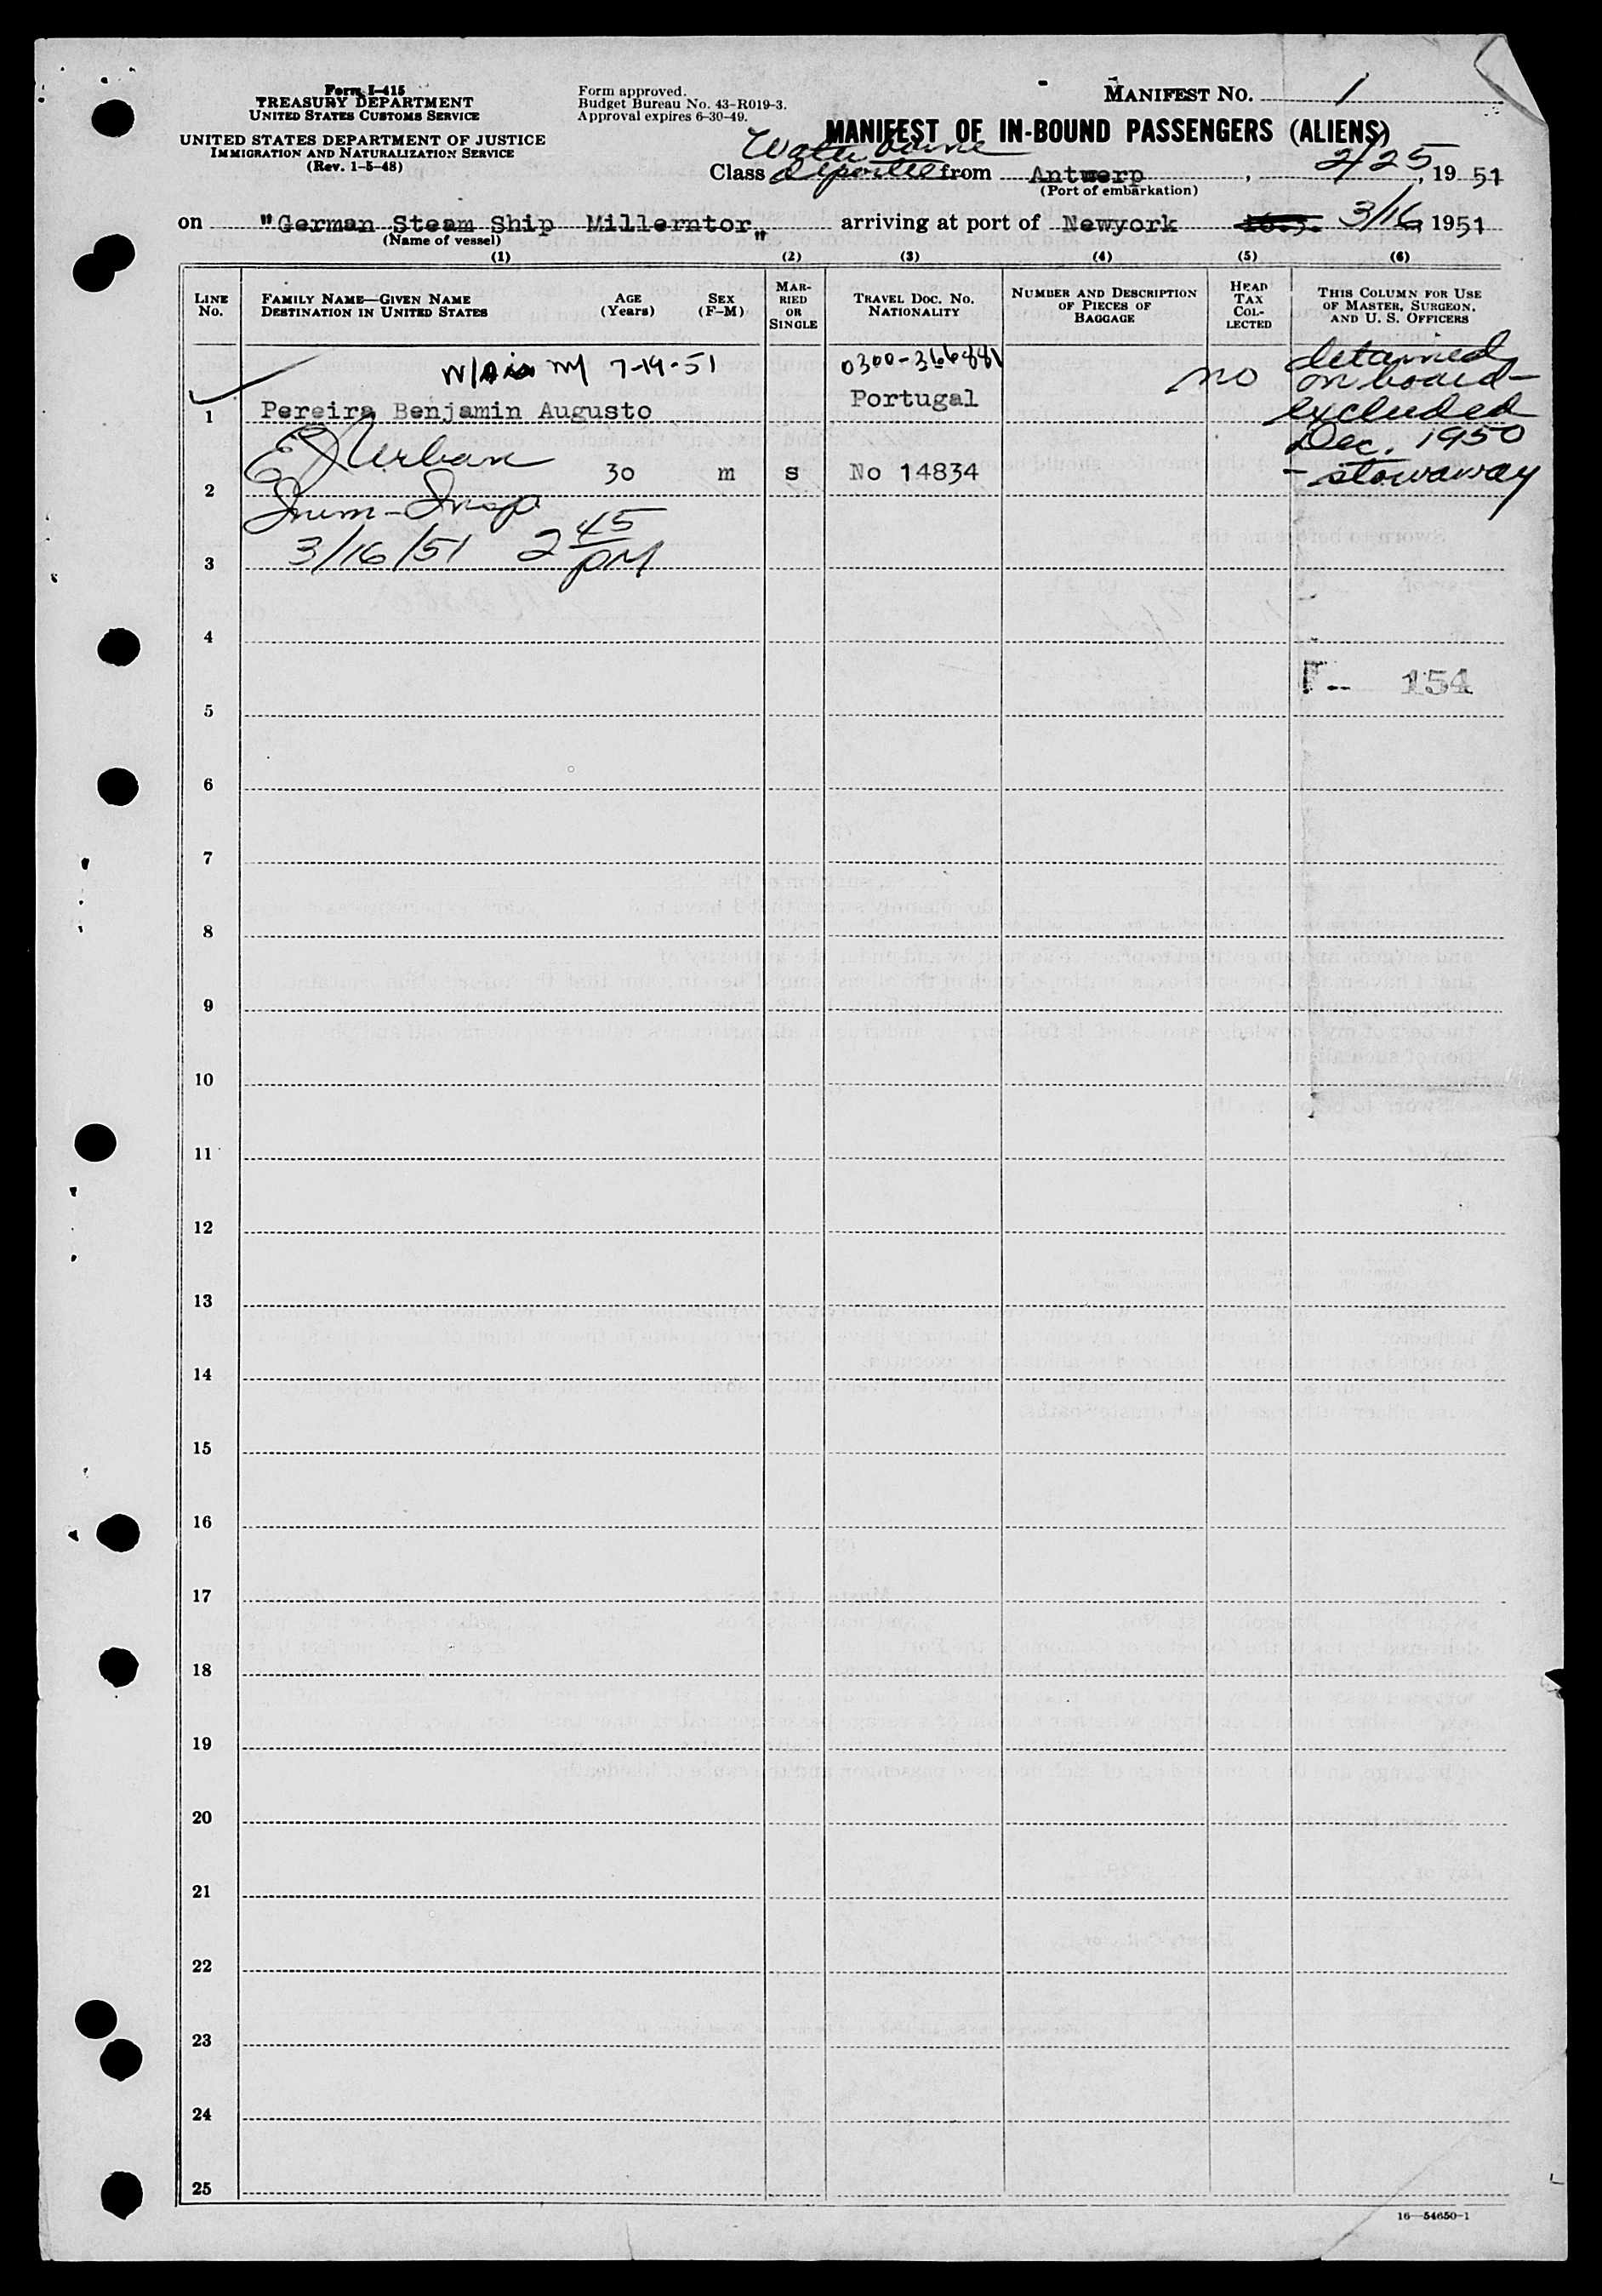 Form I-415
TREASURY DEPARTMENT
UNITED STATES CUSTOMS SERVICE
UNITED STATES DEPARTMENT OF JUSTICE
IMMIGRATION AND NATURALIZATION SERVICE
(Rev. 1-5-48)
Form approved.
Budget Bureau No. 43-R019-3.
Approval expires 6-30-49.
MANIFEST NO. 1
MANIFEST OF IN-BOUND PASSENGERS (ALIENS)
Water borne
Class deportee from Antwerp, 2/25, 1951
(Port of embarkation)
on "German Steam Ship Millerntor„ arriving at port of Newyork 3/16 1951
(Name of vessel)
(1) (2) (3) (4) (5) (6)
LINE No.
FAMILY NAME—GIVEN NAME
DESTINATION IN UNITED STATES
AGE (Years)
SEX (F-M)
MARRIED OR SINGLE
TRAVEL DOC. NO. NATIONALITY
NUMBER AND DESCRIPTION OF PIECES OF BAGGAGE
HEAD TAX COLLECTED
THIS COLUMN FOR USE OF MASTER, SURGEON, AND U. S. OFFICERS
7-19-51 0300-366881
1 Pereira Benjamin Augusto Portugal no
detained
on board-
excluded
Dec. 1950
- stowaway
E J Urban
2 30 m s No 14834
Imm-Insp
3 3/16/51 2 45 PM
4
F-- 154
5
6
7
8
9
10
11
12
13
14
15
16
17
18
19
20
21
22
23
24
25
16—54650-1